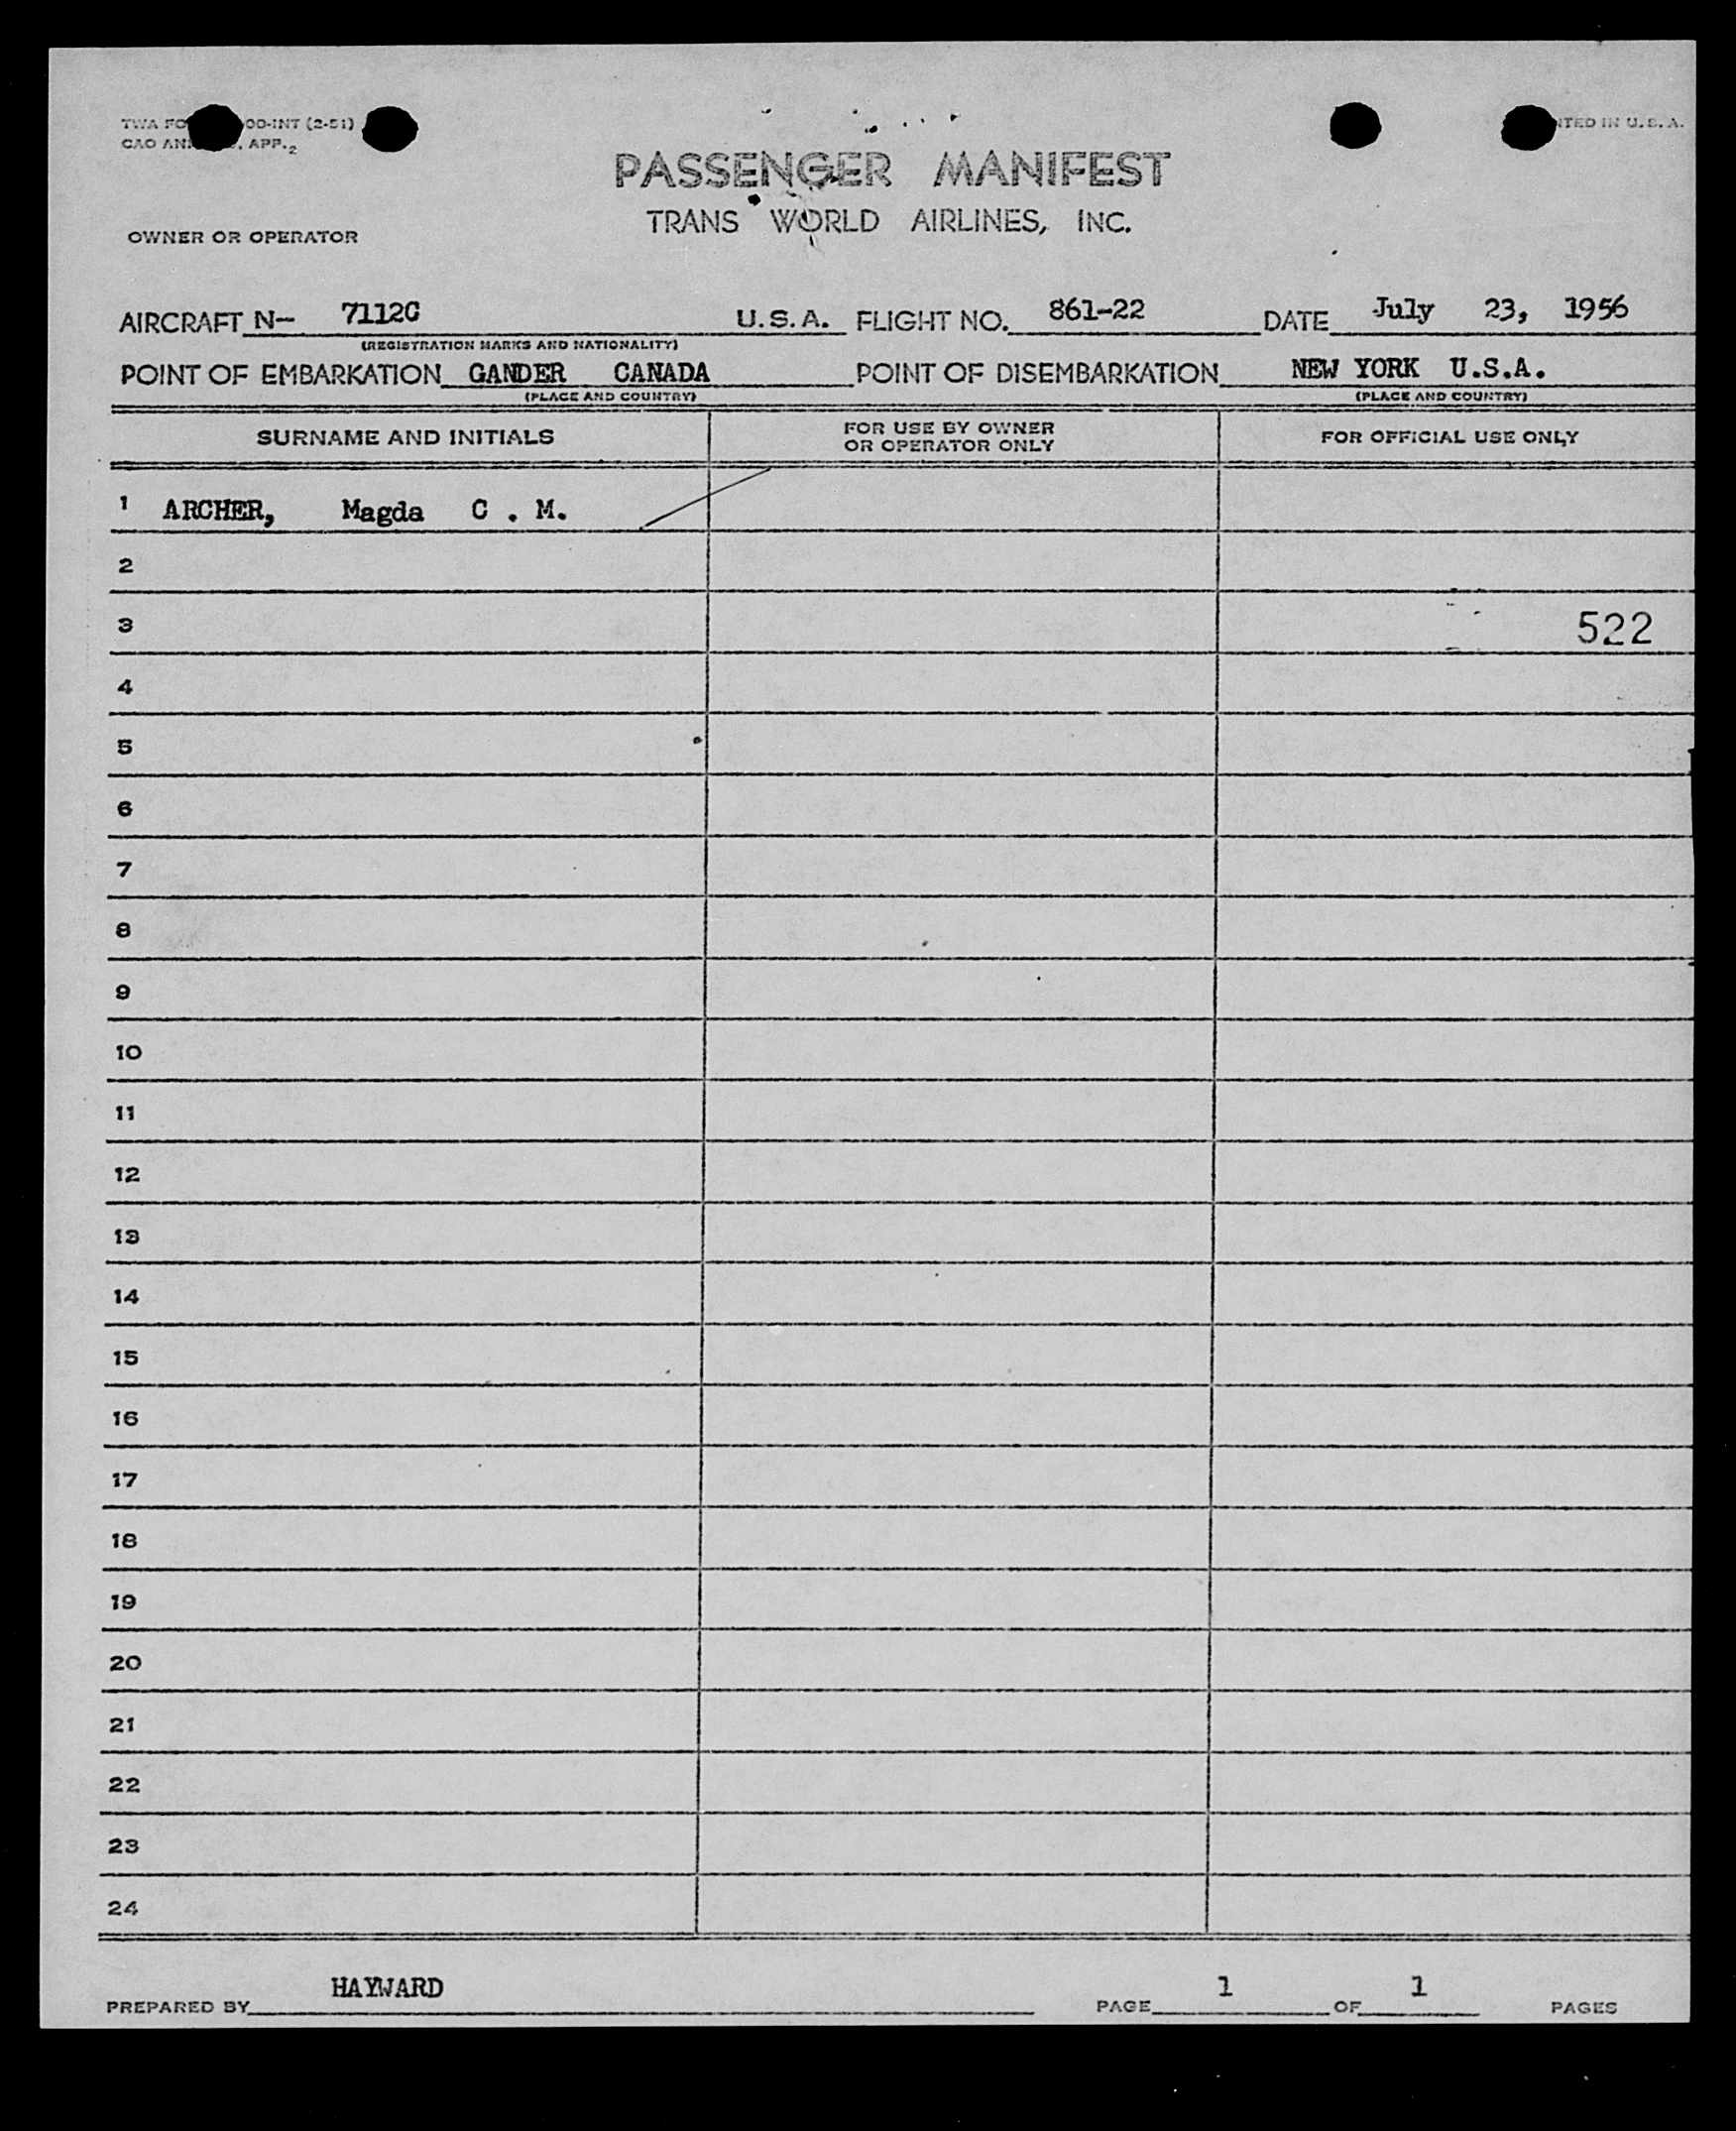 TWA FO 00-INT (2-51)
CAO AN , APP. 2
NTED IN U.S.A.
PASSENGER MANIFEST
TRANS WORLD AIRLINES, INC.
OWNER OR OPERATOR
AIRCRAFT N- 7112C U.S.A. FLIGHT NO. 861-22 DATE July 23, 1956
(REGISTRATION MARKS AND NATIONALITY)
POINT OF EMBARKATION GANDER CANADA POINT OF DISEMBARKATION NEW YORK U.S.A.
(PLACE AND COUNTRY) (PLACE AND COUNTRY)
SURNAME AND INITIALS FOR USE BY OWNER OR OPERATOR ONLY FOR OFFICIAL USE ONLY
1 ARCHER, Magda C . M.
2
3 522
4
5
6
7
8
9
10
11
12
13
14
15
16
17
18
19
20
21
22
23
24
PREPARED BY HAYWARD PAGE 1 OF 1 PAGES